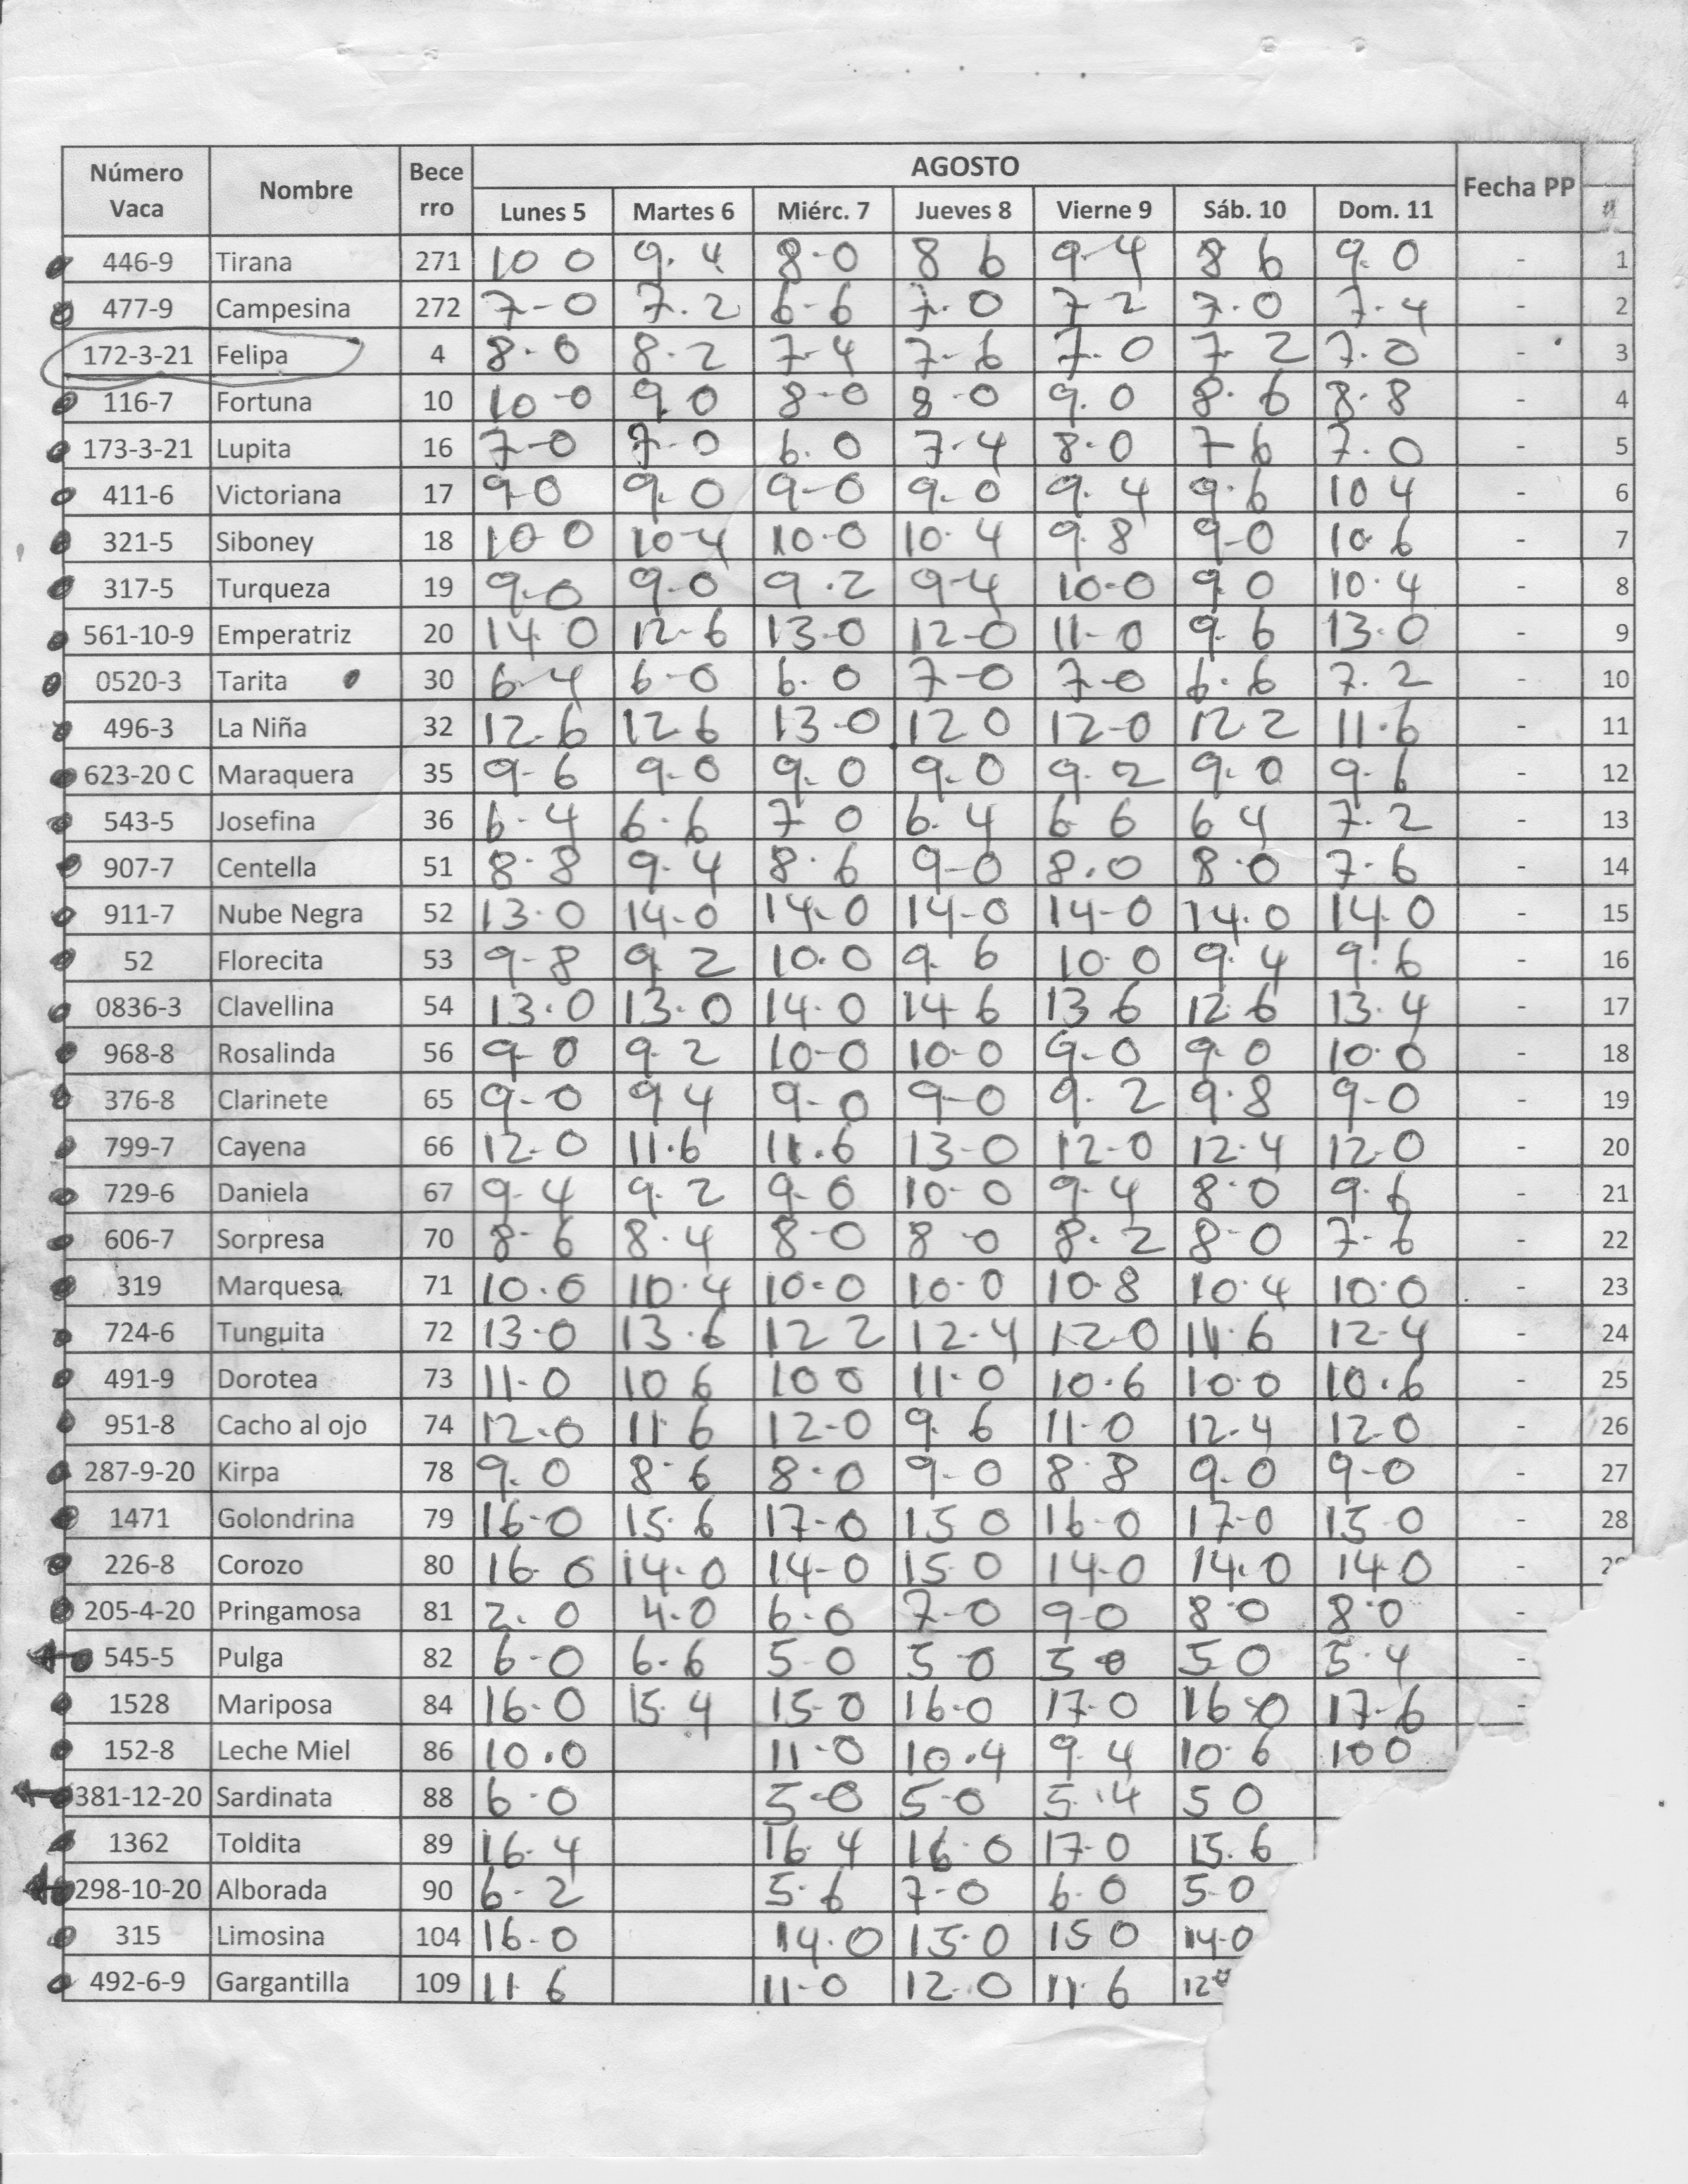 Número Vaca Nombre Becerro AGOSTO Fecha PP #
Lunes 5 Martes 6 Miérc. 7 Jueves 8 Vierne 9 Sáb. 10 Dom. 11
446-9 Tirana 271 10 0 9. 4 8-0 8 6 9-4 8 6 9. 0 - 1
477-9 Campesina 272 7-0 7. 2 6-6 7. 0 7 2 7. 0 7. 4 - 2
172-3-21 Felipa 4 8. 0 8. 2 7-4 7-6 7. 0 7. 2 7. 0 - 3
116-7 Fortuna 10 10-0 9. 0 8-0 8-0 9. 0 8. 6 8. 8 - 4
173-3-21 Lupita 16 7-0 7-0 6. 0 7. 4 8. 0 7-6 7. 0 - 5
411-6 Victoriana 17 9-0 9. 0 9-0 9. 0 9. 4 9. 6 10 4 - 6
321-5 Siboney 18 10-0 10-4 10-0 10. 4 9. 8 9-0 10. 6 - 7
317-5 Turqueza 19 9-0 9-0 9. 2 9-4 10-0 9. 0 10. 4 - 8
561-10-9 Emperatriz 20 14. 0 12-6 13-0 12-0 11-0 9. 6 13. 0 - 9
0520-3 Tarita 30 6. 4 6-0 6. 0 7-0 7-0 6. 6 7. 2 - 10
496-3 La Niña 32 12. 6 12 6 13-0 12 0 12-0 12. 2 11. 6 - 11
623-20 C Maraquera 35 9-6 9-0 9. 0 9. 0 9. 2 9. 0 9. 6 - 12
543-5 Josefina 36 6. 4 6. 6 7 0 6. 4 6 6 6 4 7. 2 - 13
907-7 Centella 51 8. 8 9. 4 8. 6 9-0 8. 0 8. 0 7. 6 - 14
911-7 Nube Negra 52 13. 0 14-0 14-0 14-0 14-0 14. 0 14. 0 - 15
52 Florecita 53 9-8 9. 2 10. 0 9. 6 10. 0 9. 4 9. 6 - 16
0836-3 Clavellina 54 13. 0 13. 0 14. 0 14 6 13 6 12. 6 13. 4 - 17
968-8 Rosalinda 56 9-0 9-2 10-0 10-0 9-0 9. 0 10. 0 - 18
376-8 Clarinete 65 9-0 9 4 9-0 9-0 9. 2 9. 8 9-0 - 19
799-7 Cayena 66 12. 0 11. 6 11. 6 13-0 12-0 12. 4 12. 0 - 20
729-6 Daniela 67 9. 4 9. 2 9-0 10-0 9-4 8. 0 9. 6 - 21
606-7 Sorpresa 70 8-6 8. 4 8-0 8-0 8. 2 8-0 7-6 - 22
319 Marquesa 71 10. 0 10. 4 10-0 10-0 10. 8 10. 4 10. 0 - 23
724-6 Tunguita 72 13. 0 13. 6 12 2 12. 4 12-0 11. 6 12-4 - 24
491-9 Dorotea 73 11. 0 10 6 10 0 11. 0 10. 6 10. 0 10. 6 - 25
951-8 Cacho al ojo 74 12. 0 11 6 12-0 9. 6 11-0 12. 4 12. 0 - 26
287-9-20 Kirpa 78 9. 0 8. 6 8. 0 9-0 8. 8 9. 0 9-0 - 27
1471 Golondrina 79 16-0 15. 6 17-0 15 0 16-0 17-0 15. 0 - 28
226-8 Corozo 80 16. 0 14. 0 14-0 15. 0 14-0 14. 0 14. 0 -
205-4-20 Pringamosa 81 2. 0 4. 0 6. 0 7-0 9-0 8. 0 8. 0 -
545-5 Pulga 82 6-0 6. 6 5-0 5 0 5 0 5. 0 5. 4 -
1528 Mariposa 84 16. 0 15. 4 15-0 16-0 17. 0 16. 0 17-6 -
152-8 Leche Miel 86 10. 0 11-0 10. 4 9. 4 10. 6 10 0
381-12-20 Sardinata 88 6-0 5-0 5-0 5. 4 5 0
1362 Toldita 89 16. 4 16. 4 16. 0 17-0 15. 6
298-10-20 Alborada 90 6-2 5. 6 7-0 6. 0 5-0
315 Limosina 104 16-0 14. 0 15. 0 15 0 14-0
492-6-9 Gargantilla 109 11. 6 11-0 12. 0 11. 6 12